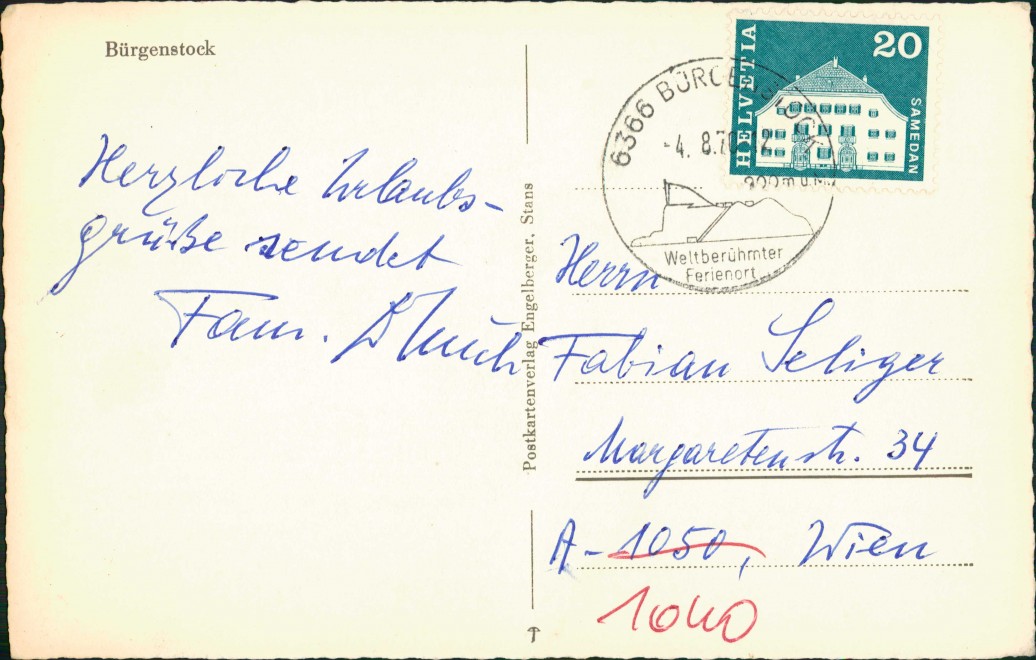 Bürgenstock
Herzliche Urlaubs-
grüße sendet
Fam.
Postkartenverlag Engelberger, Stans
HELVETIA
20
SAMEDAN
6366 BÜRGENSTOCK
-4. 8.70
800 m ü. M.
Weltberühmter
Ferienort
Herrn
Fabian Seliger
Margaretenstr. 34
A-1050, Wien
1040